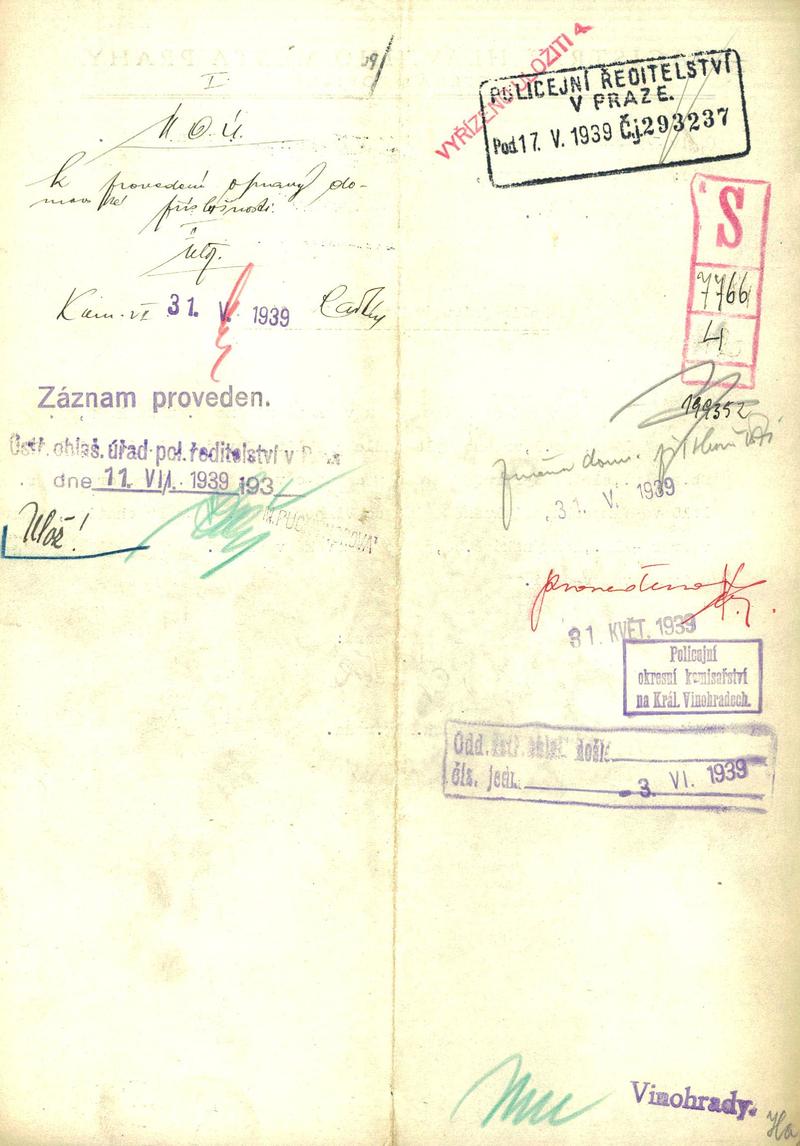 I
Ú.O.Ú.
k provedení opravy do-
movské příslušnosti.
Kom. VI 31. V. 1939
Záznam proveden.
Ústř. ohlaš. úřad pol. ředitelství v
dne 11. VII. 1939 193
Ulož!
VYŘÍZENO ULOŽITI
POLICEJNÍ ŘEDITELSTVÍ
V PRAZE.
Pod 17. V. 1939 Čj. 293237
S
7766
4
199352
změna dom. příslušnosti
31. V. 1939
provedena
31. KVĚT. 1939
Policejní
okresní komisařství
na Král. Vinohradech.
Odd. ústř. ohlaš. došlo
čís. jedn. - 3. VI. 1939
Vinohrady.